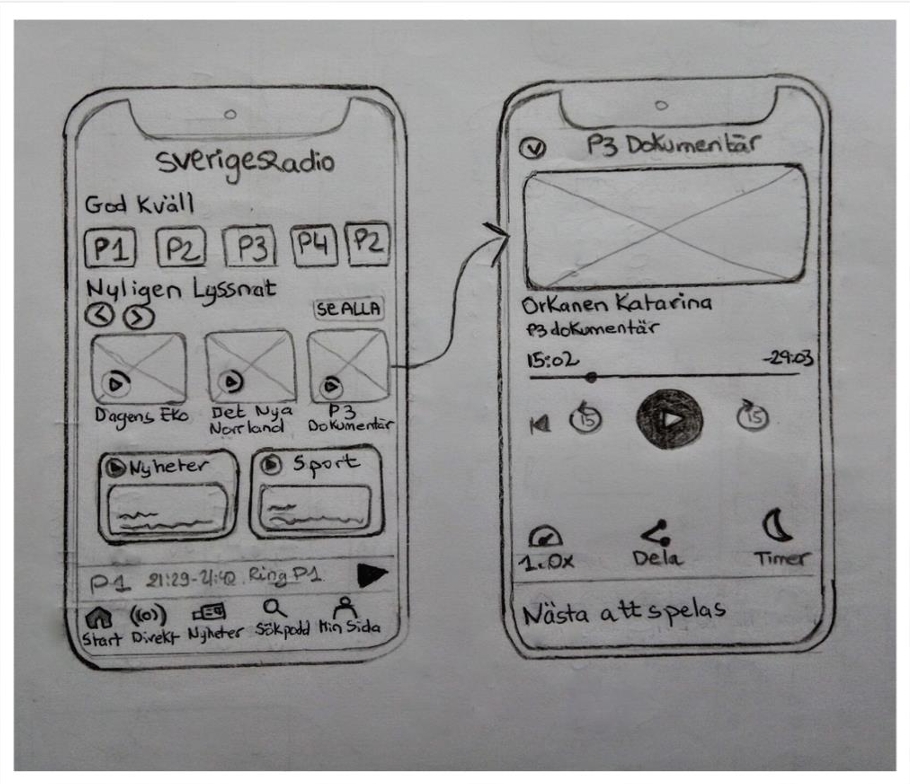 SverigesRadio
God Kväll
P1 P2 P3 P4 P2
Nyligen Lyssnat
SE ALLA
Dagens Eko
Det Nya Norrland
P3 Dokumentär
Nyheter
Sport
P1 21:29-21:42 Ring P1
Start Direkt Nyheter Sökpodd Min Sida
P3 Dokumentär
Orkanen Katarina
P3 dokumentär
15:02 -29:03
15 15
1.0x Dela Timer
Nästa att spelas